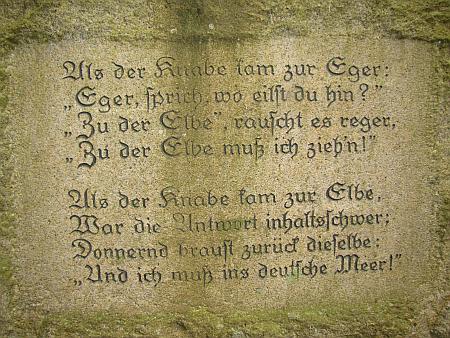 Als der Knabe kam zur Eger:
„Eger, sprich, wo eilst du hin?"
„Zu der Elbe", rauscht es reger,
„Zu der Elbe muß ich zieh'n!"
Als der Knabe kam zur Elbe,
War die Antwort inhaltsschwer;
Donnernd braust zurück dieselbe:
„Und ich muß ins deutsche Meer!"